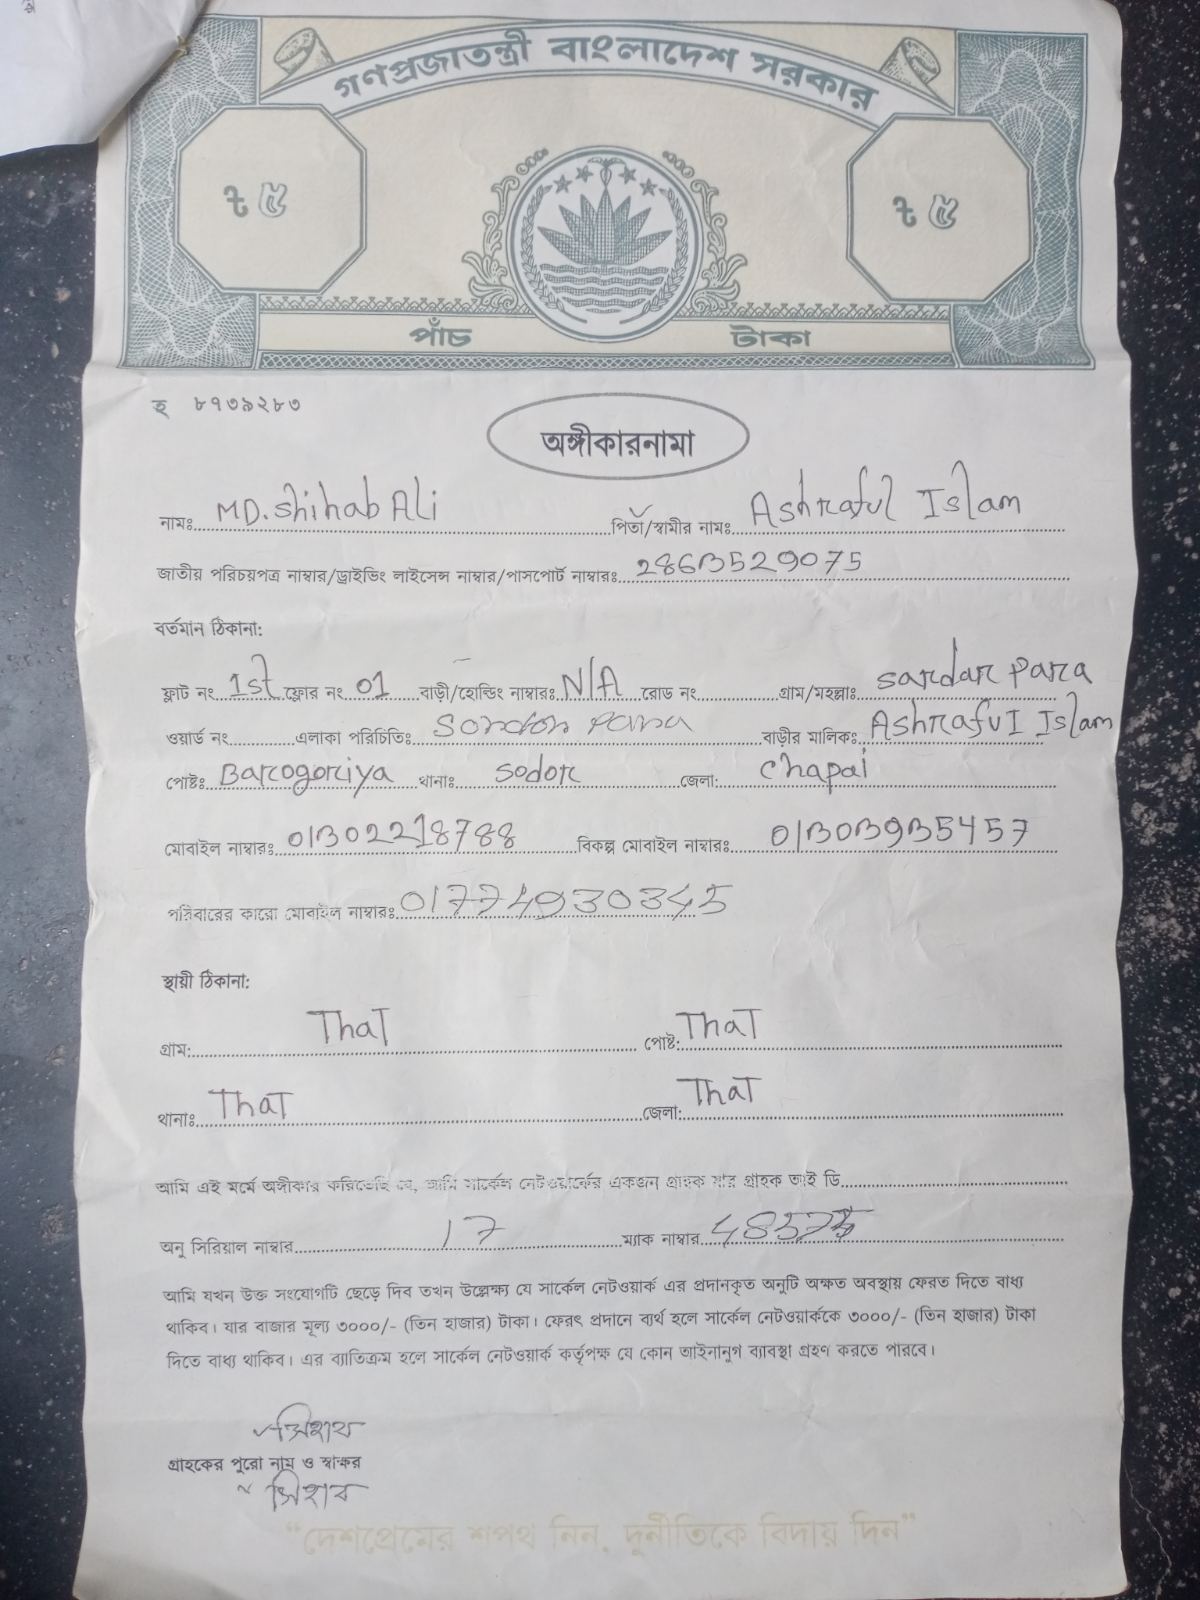 গণপ্রজাতন্ত্রী বাংলাদেশ সরকার
৳ ৫ ৳ ৫
পাঁচ টাকা
হ ৮৭৩৯২৮৩
অঙ্গীকারনামা
নামঃ MD. Shihab Ali পিতা/স্বামীর নামঃ Ashraful Islam
জাতীয় পরিচয়পত্র নাম্বার/ড্রাইভিং লাইসেন্স নাম্বার/পাসপোর্ট নাম্বারঃ 2863529075
বর্তমান ঠিকানা:
ফ্লাট নং 1st ফ্লোর নং 01 বাড়ী/হোল্ডিং নাম্বারঃ N/A রোড নং গ্রাম/মহল্লাঃ sardar para
ওয়ার্ড নং এলাকা পরিচিতিঃ Sordor Para বাড়ীর মালিকঃ Ashraful Islam
পোষ্টঃ Barogoriya থানাঃ sodor জেলা: Chapai
মোবাইল নাম্বারঃ 01302218788 বিকল্প মোবাইল নাম্বারঃ 01303935457
পরিবারের কারো মোবাইল নাম্বারঃ 01774930345
স্থায়ী ঠিকানা:
গ্রাম: ThaT পোষ্ট: ThaT
থানাঃ ThaT জেলা: ThaT
আমি এই মর্মে অঙ্গীকার করিতেছি যে, আমি সার্কেল নেটওয়ার্কের একজন গ্রাহক যার গ্রাহক আই ডি
অনু সিরিয়াল নাম্বার 17 ম্যাক নাম্বার
আমি যখন উক্ত সংযোগটি ছেড়ে দিব তখন উল্লেক্ষ্য যে সার্কেল নেটওয়ার্ক এর প্রদানকৃত অনুটি অক্ষত অবস্থায় ফেরত দিতে বাধ্য
থাকিব। যার বাজার মূল্য ৩০০০/- (তিন হাজার) টাকা। ফেরৎ প্রদানে ব্যর্থ হলে সার্কেল নেটওয়ার্ককে ৩০০০/- (তিন হাজার) টাকা
দিতে বাধ্য থাকিব। এর ব্যাতিক্রম হলে সার্কেল নেটওয়ার্ক কর্তৃপক্ষ যে কোন আইনানুগ ব্যাবস্থা গ্রহণ করতে পারবে।
সিহাব
গ্রাহকের পুরো নাম ও স্বাক্ষর
সিহাব
“দেশপ্রেমের শপথ নিন, দুর্নীতিকে বিদায় দিন”